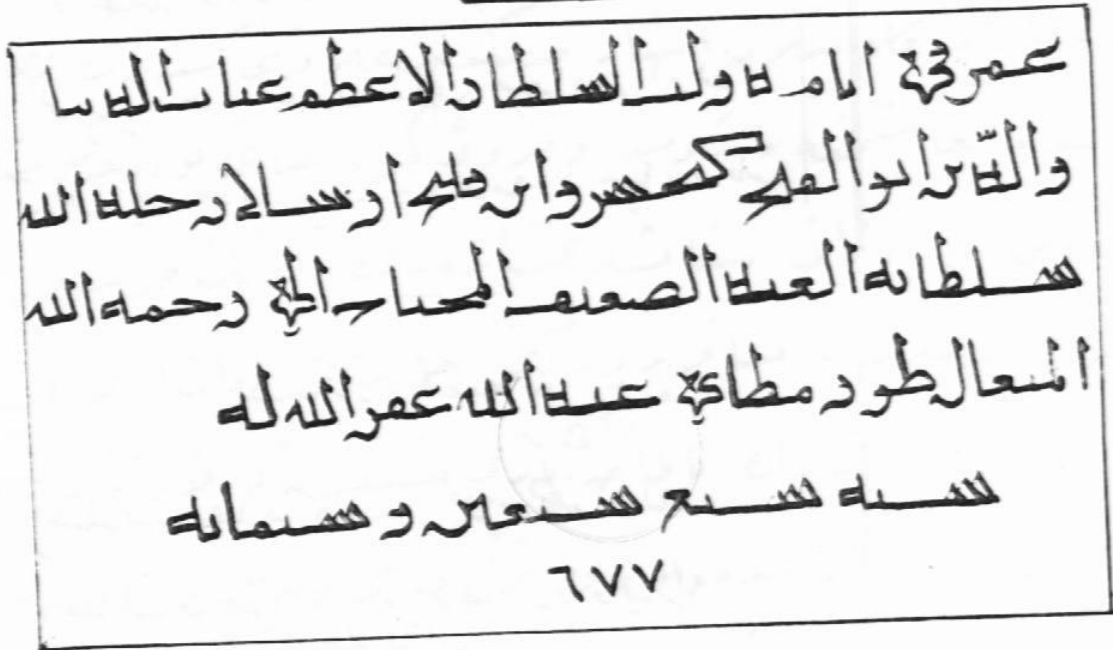 عمر في ايام دولت السلطان الاعظم غياث الدنيا
والدين ابو الفتح كيخسرو ابن قلج ارسلان خلد الله
سلطانه العبد الضعيف المحتاج الي رحمه الله
المتعال عبد الله غفر الله له
سنه سبع سبعين و ستمايه
٦٧٧